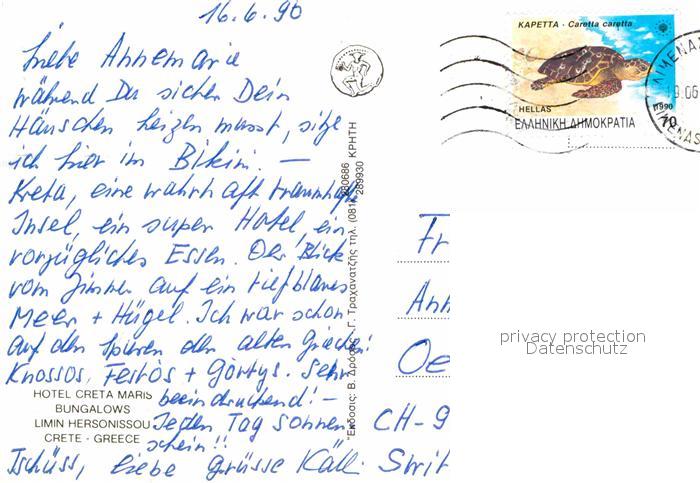 16.6.90
Liebe Annemarie
während Du sicher Dein
Häuschen heizen musst, sitze
ich hier im Bikini. —
Kreta, eine wahrhaft traumhafte
Insel, ein super Hotel, ein
vorzügliches Essen. Der Blick
vom Zimmer auf ein tiefblaues
Meer + Hügel. Ich war schon
auf den Spuren der alten Griechen!
Knossos, Festòs + Görtys. Sehr
beeindruckend! —
Jeden Tag Sonnen
schein!!
Tschüss, liebe Grüsse Käti
HOTEL CRETA MARIS
BUNGALOWS
LIMIN HERSONISSOU
CRETE - GREECE
Έκδοσις: Β. Δρόσος - Γ. Τραχανατζής τηλ. (081) 289930 ΚΡΗΤΗ
280686
ΚΑΡΕΤΤΑ - Caretta caretta
HELLAS
1990
ΕΛΛΗΝΙΚΗ ΔΗΜΟΚΡΑΤΙΑ
70
ΛΙΜΕΝΑΣ
19.06
Fr
Ann
Oe
CH-9
privacy protection
Datenschutz